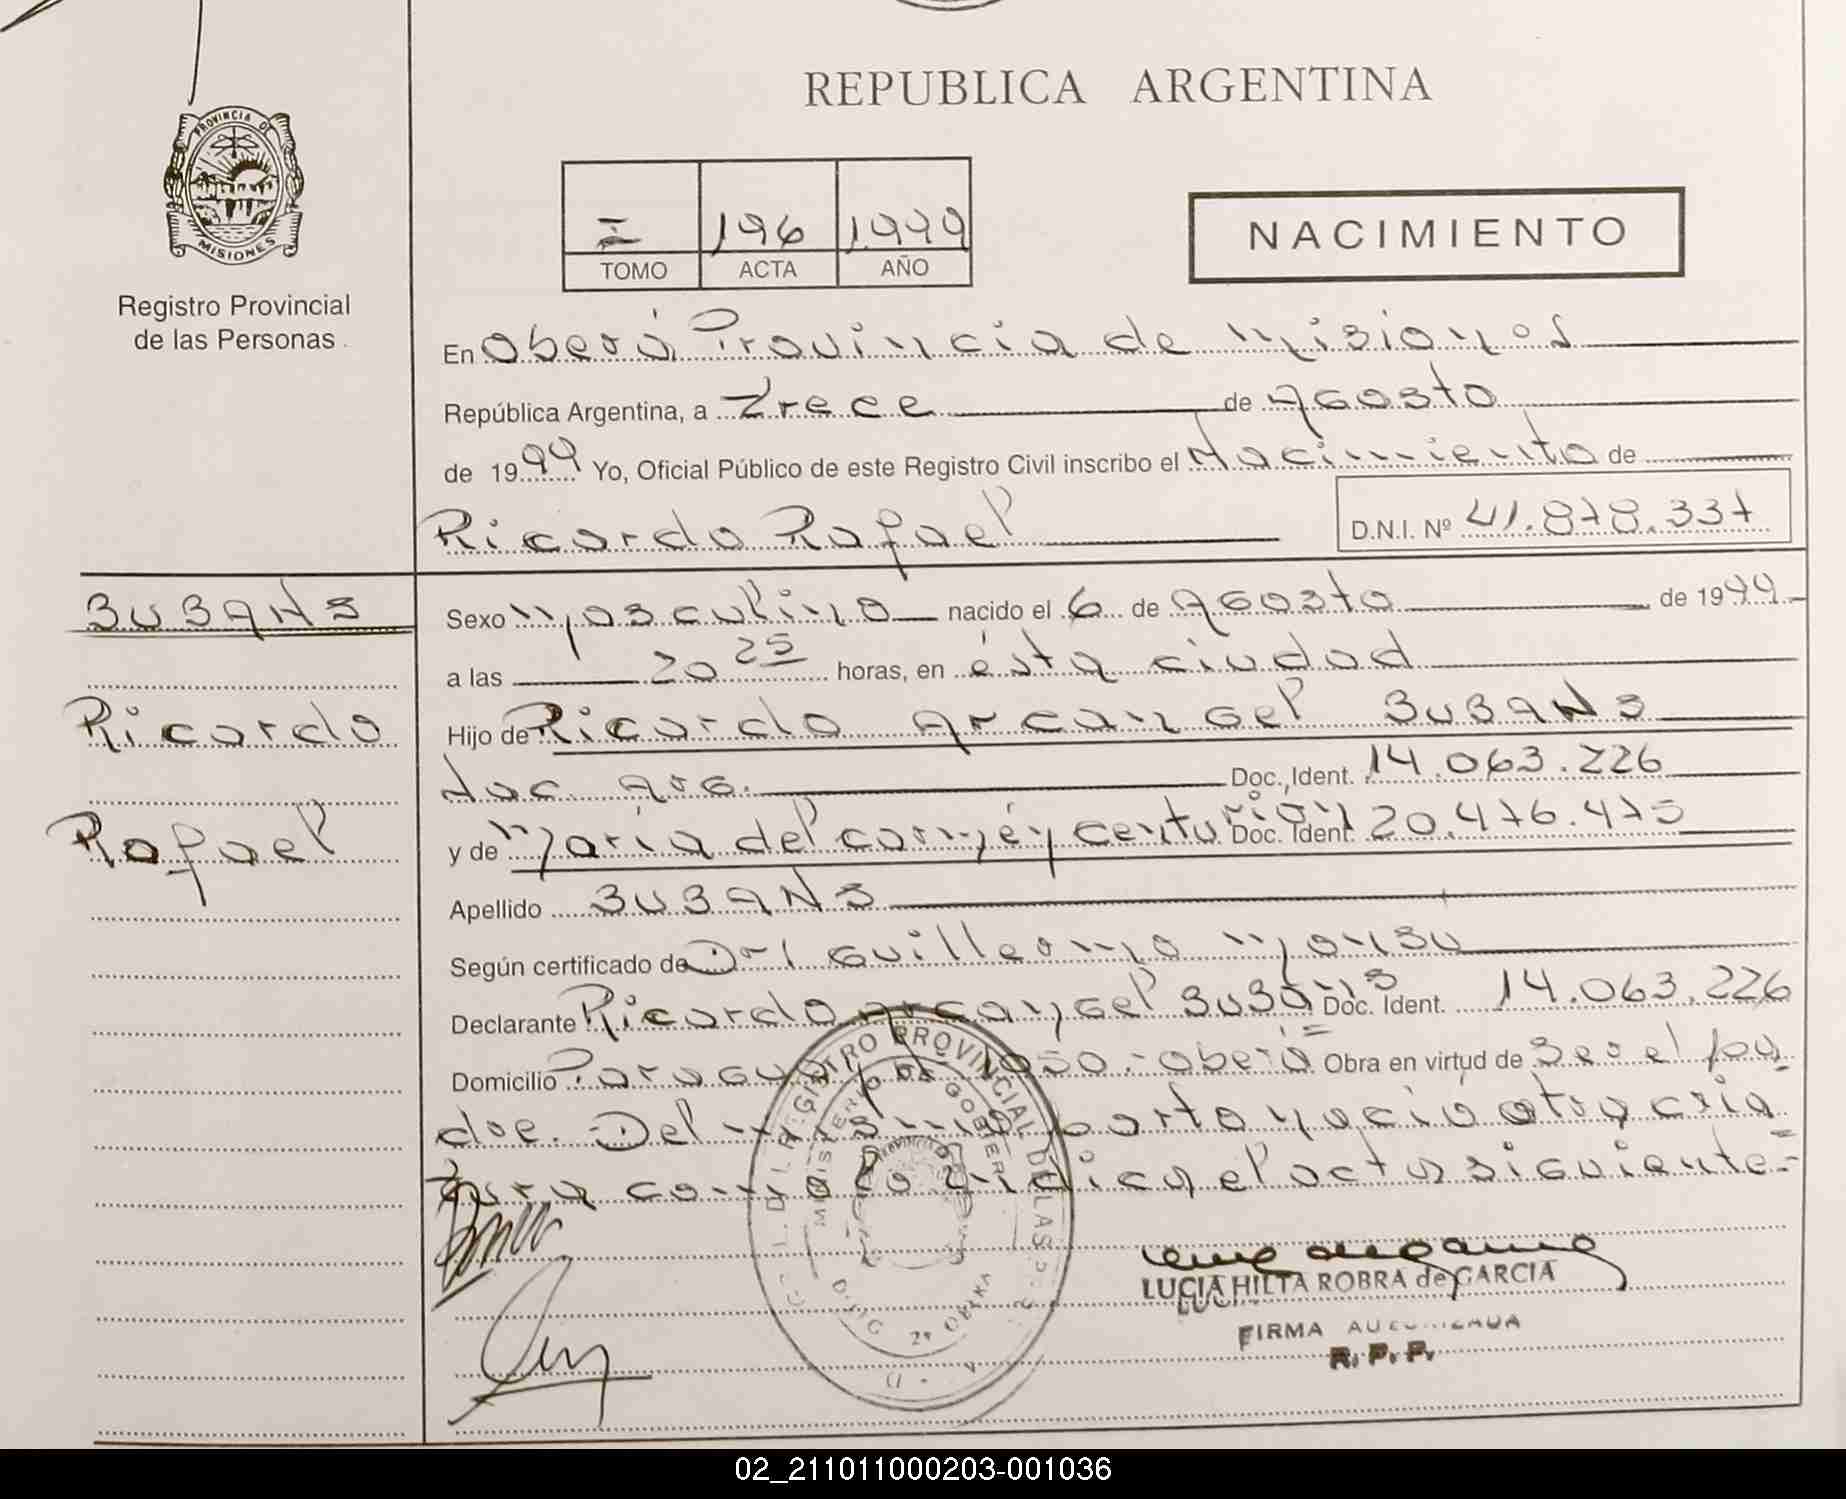 REPUBLICA ARGENTINA
PROVINCIA DE
MISIONES
Registro Provincial
de las Personas
I 196 1999
TOMO ACTA AÑO
NACIMIENTO
En Oberá Provincia de Misiones
República Argentina, a Trece de Agosto
de 1999 Yo, Oficial Público de este Registro Civil inscribo el Nacimiento de
Ricardo Rafael
D.N.I. Nº 41.878.337
SUBANS
Ricardo
Rafael
Sexo Masculino nacido el 6 de Agosto de 1999
a las 20 25 horas, en ésta ciudad
Hijo de Ricardo Arcangel SUBANS
Nac. Arg. Doc. Ident. 14.063.226
y de María del Carmen Centurion Doc. Ident. 20.476.475
Apellido SUBANS
Según certificado de Dr. Guillermo
Declarante Ricardo Arcangel SUBANS Doc. Ident. 14.063.226
Domicilio Paraguay 1050.-Oberá= Obra en virtud de Ser el pa-
dre. Del mismo parto nació otra cria
tura como lo indica el acta siguiente.=
REGISTRO PROVINCIAL DE LAS
MINISTERIO DE GOBIERNO
LUCIA HILTA ROBRA de GARCIA
FIRMA AUTORIZADA
R. P. P.
02_211011000203-001036